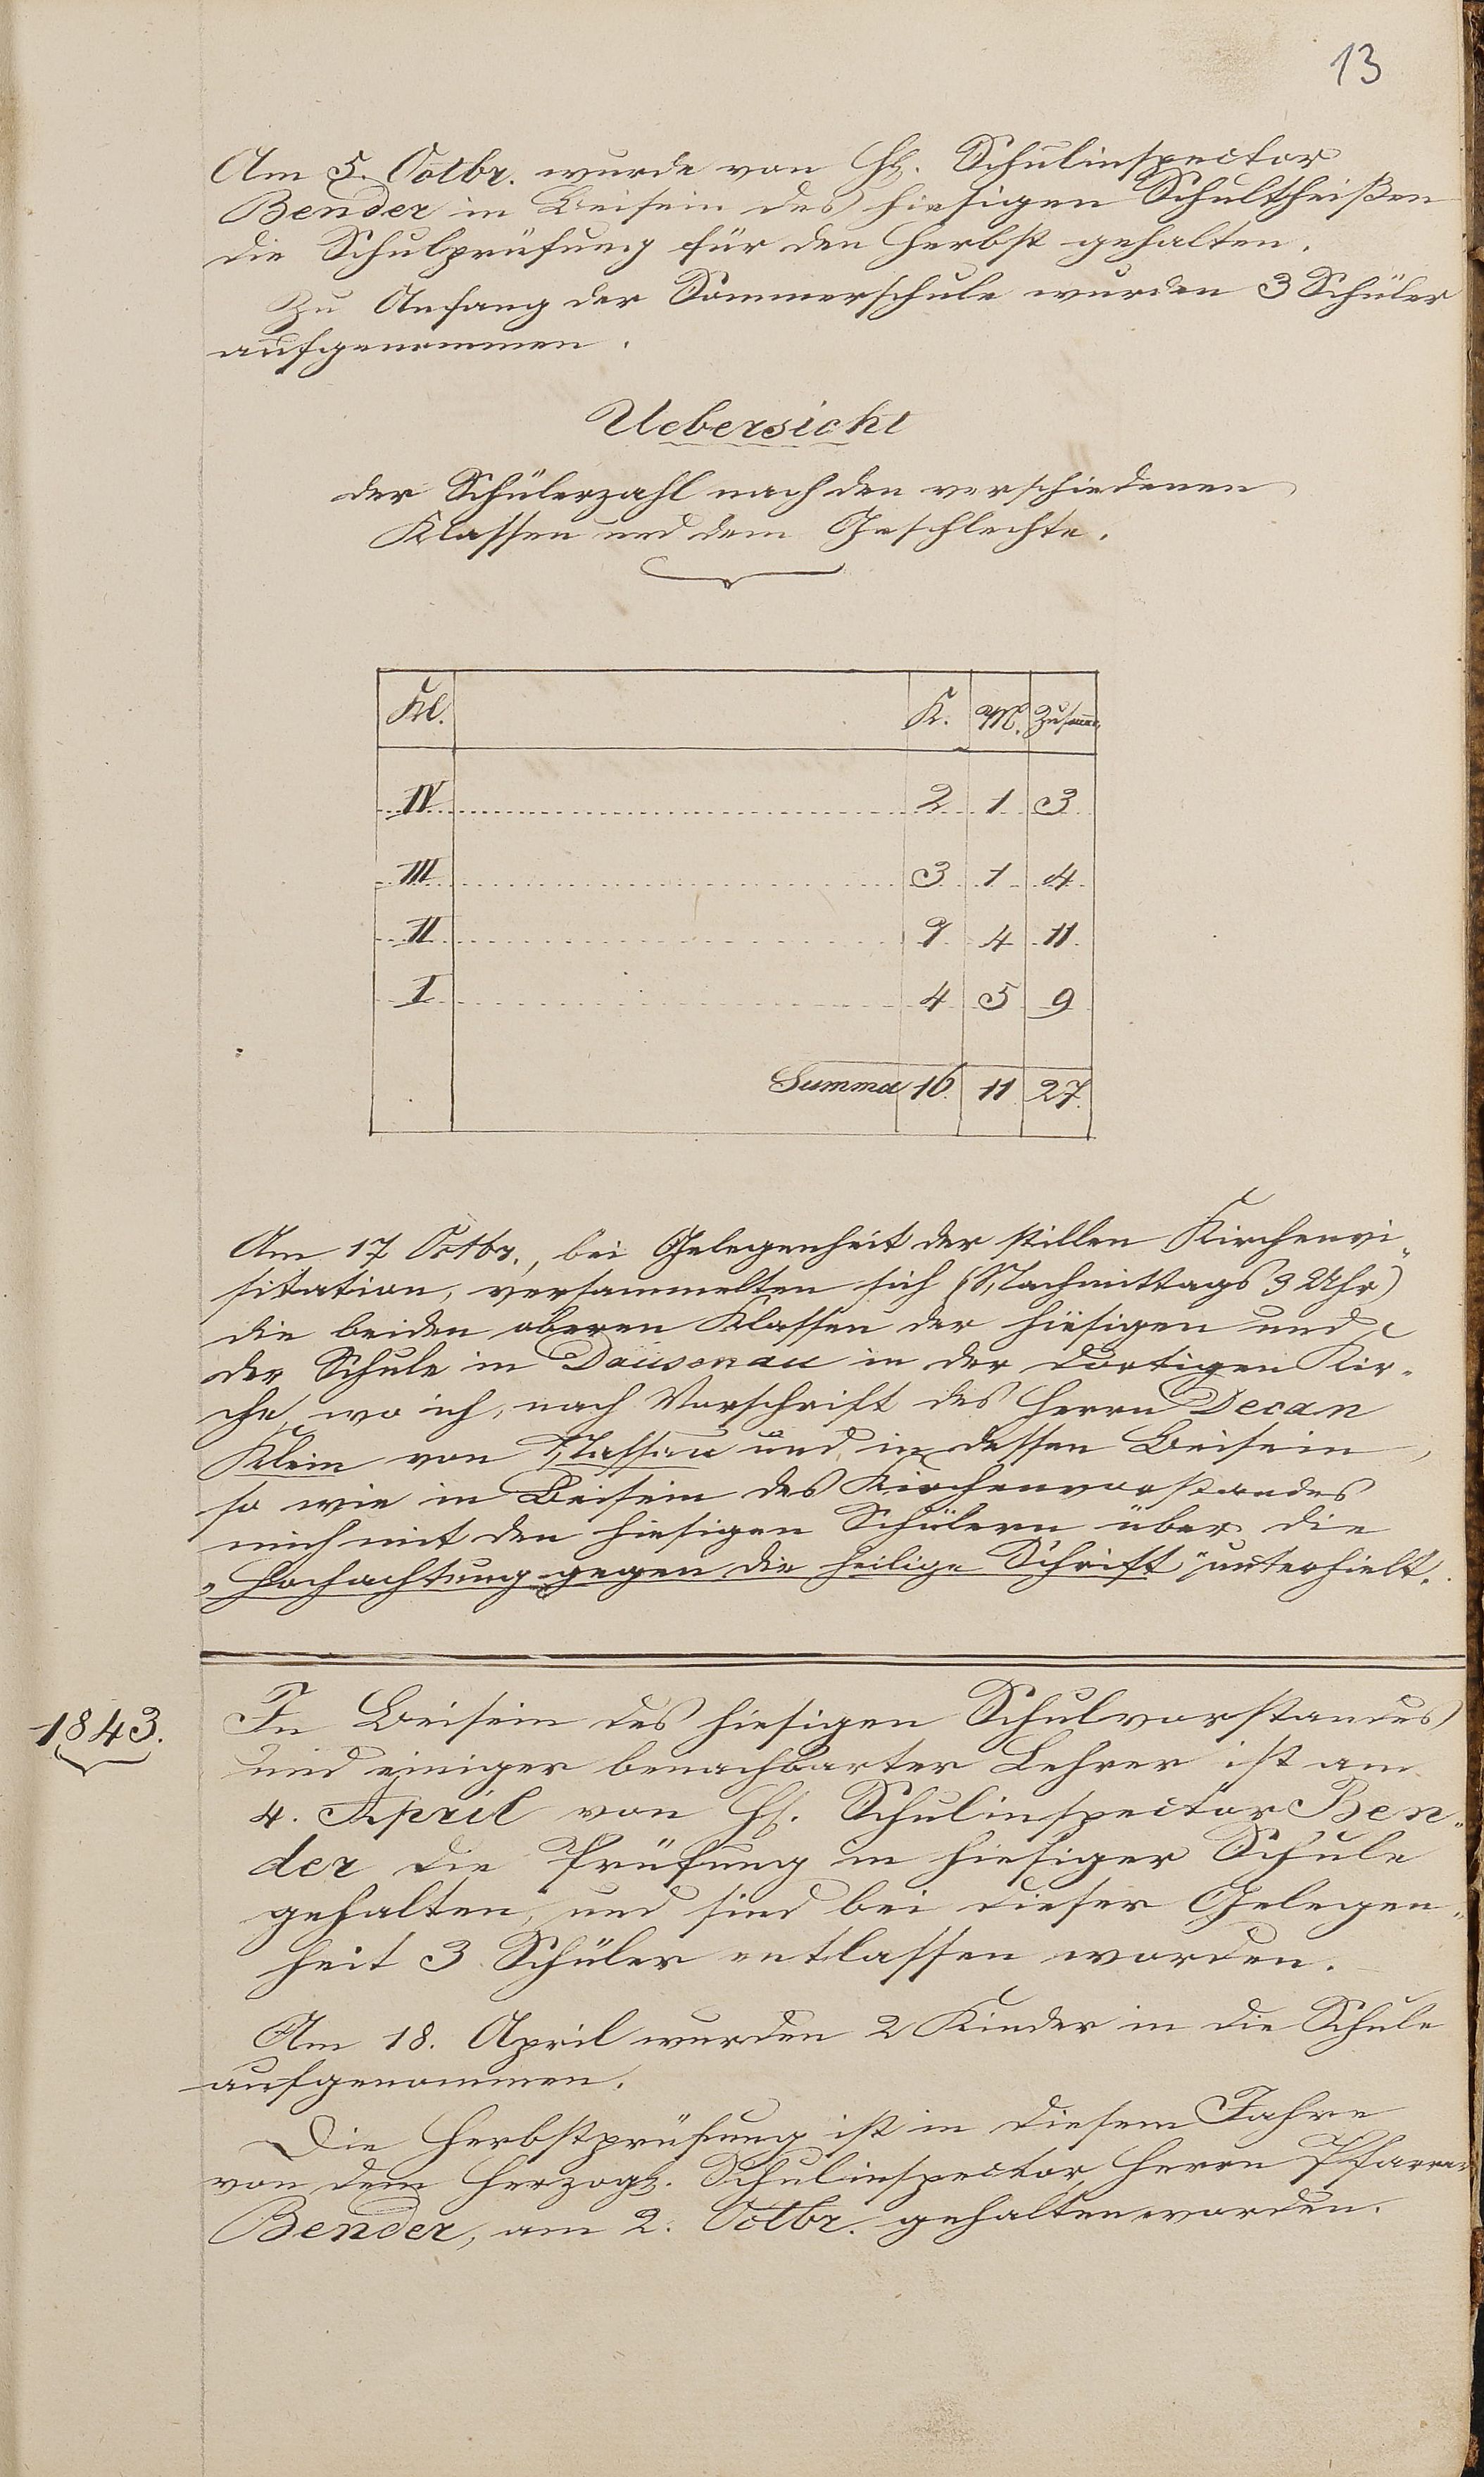 13
Am 5. Octbr. wurde von H. Schulinspector
Bender in Beisein des hiesigen Schultheißen
die Schulprüfung für den Herbst gehalten.
Zu Anfang der Sommerschule wurden 3 Schüler
aufgenommen.
Uebersicht
der Schülerzahl nach den verschiedenen
Klassen und dem Geschlechte.
Kl. K. M. Zusammen
IV 2 1 3
III 3 1 4
II 7 4 11
I 4 5 9
Summa 16. 11 27.
Am 17 Octbr., bei Gelegenheit der stillen Kirchenvi„
sitation, versammelten sich (Nachmittags 3 Uhr)
die beiden oberen Klassen der hiesigen und
der Schule in Dausenau in der dortigen Kir-
che, wo ich, nach Vorschrift des Herrn Decan
Klein von Nassau und in dessen Beisein,
so wie in Beisein des Kirchenvorstandes
mich mit den hiesigen Schülern über die
„Hochachtung gegen die heilige Schrift“ unterhielt.
1843.
In Beisein des hiesigen Schulvorstandes
und einiger benachbarter Lehrer ist am
4. April von H. Schulinspector Ben„
der die Prüfung in hiesiger Schule
gehalten, und sind bei dieser Gelegen„
heit 3 Schüler entlassen worden.
Am 18. April wurden 2 Kinder in die Schule
aufgenommen.
Die Herbstprüfung ist in diesem Jahre
von dem Herzogl. Schulinspector, Herrn Pfarrer
Bender, am 2. Octbr. gehalten worden.